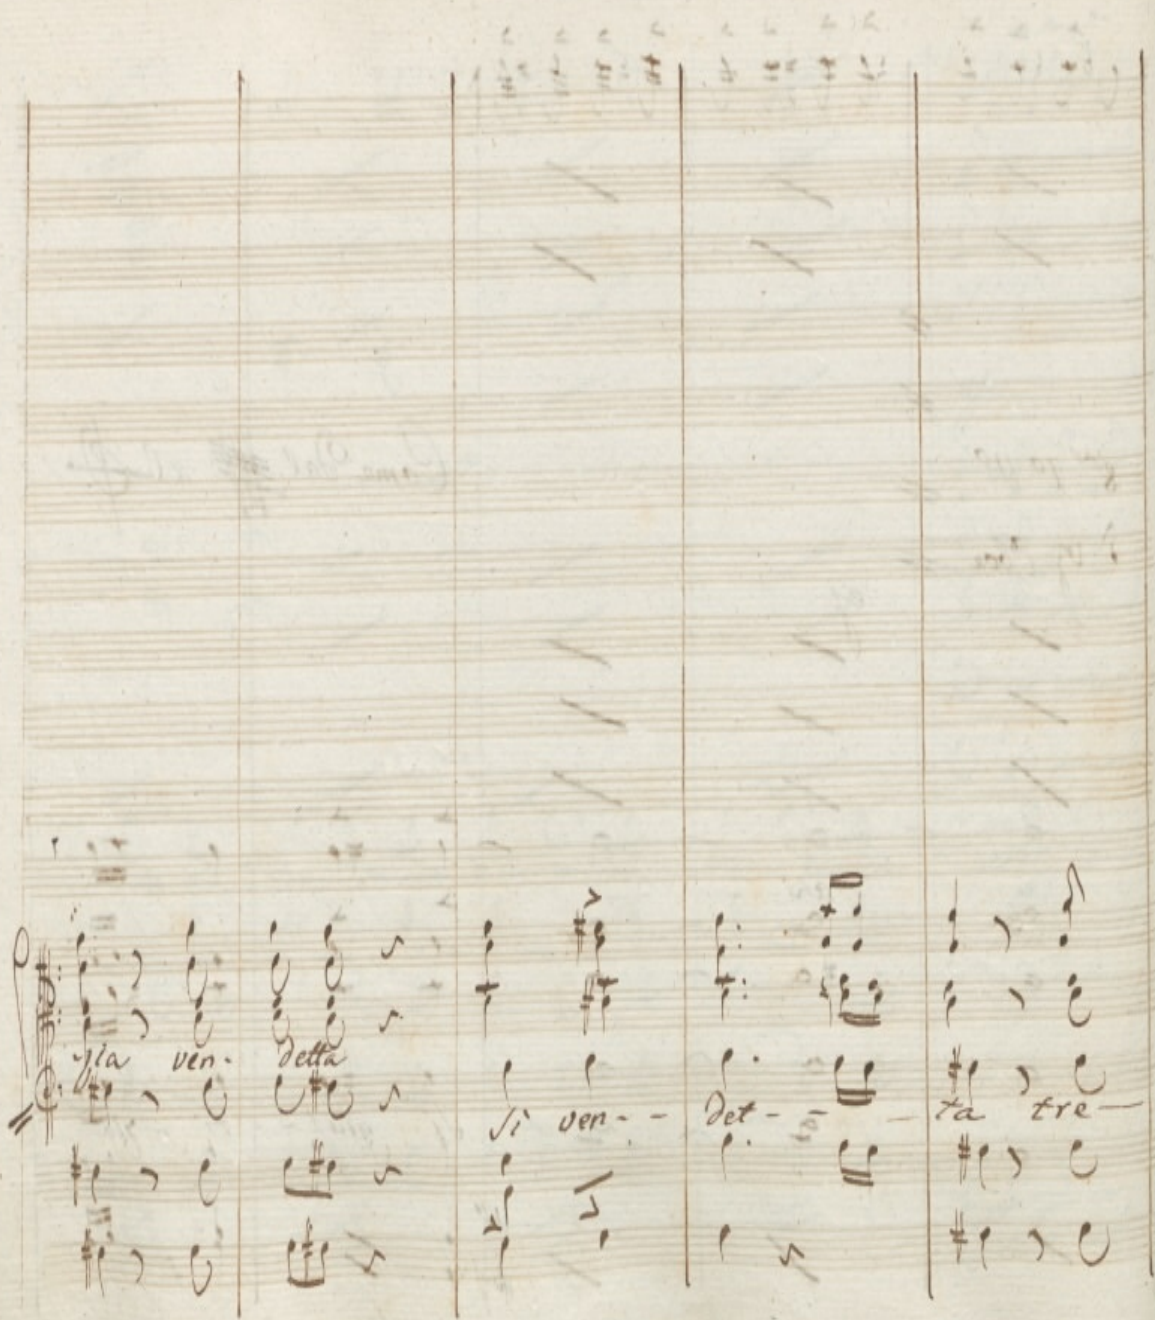 gia ven- detta
si ven- - det- - - ta tre-